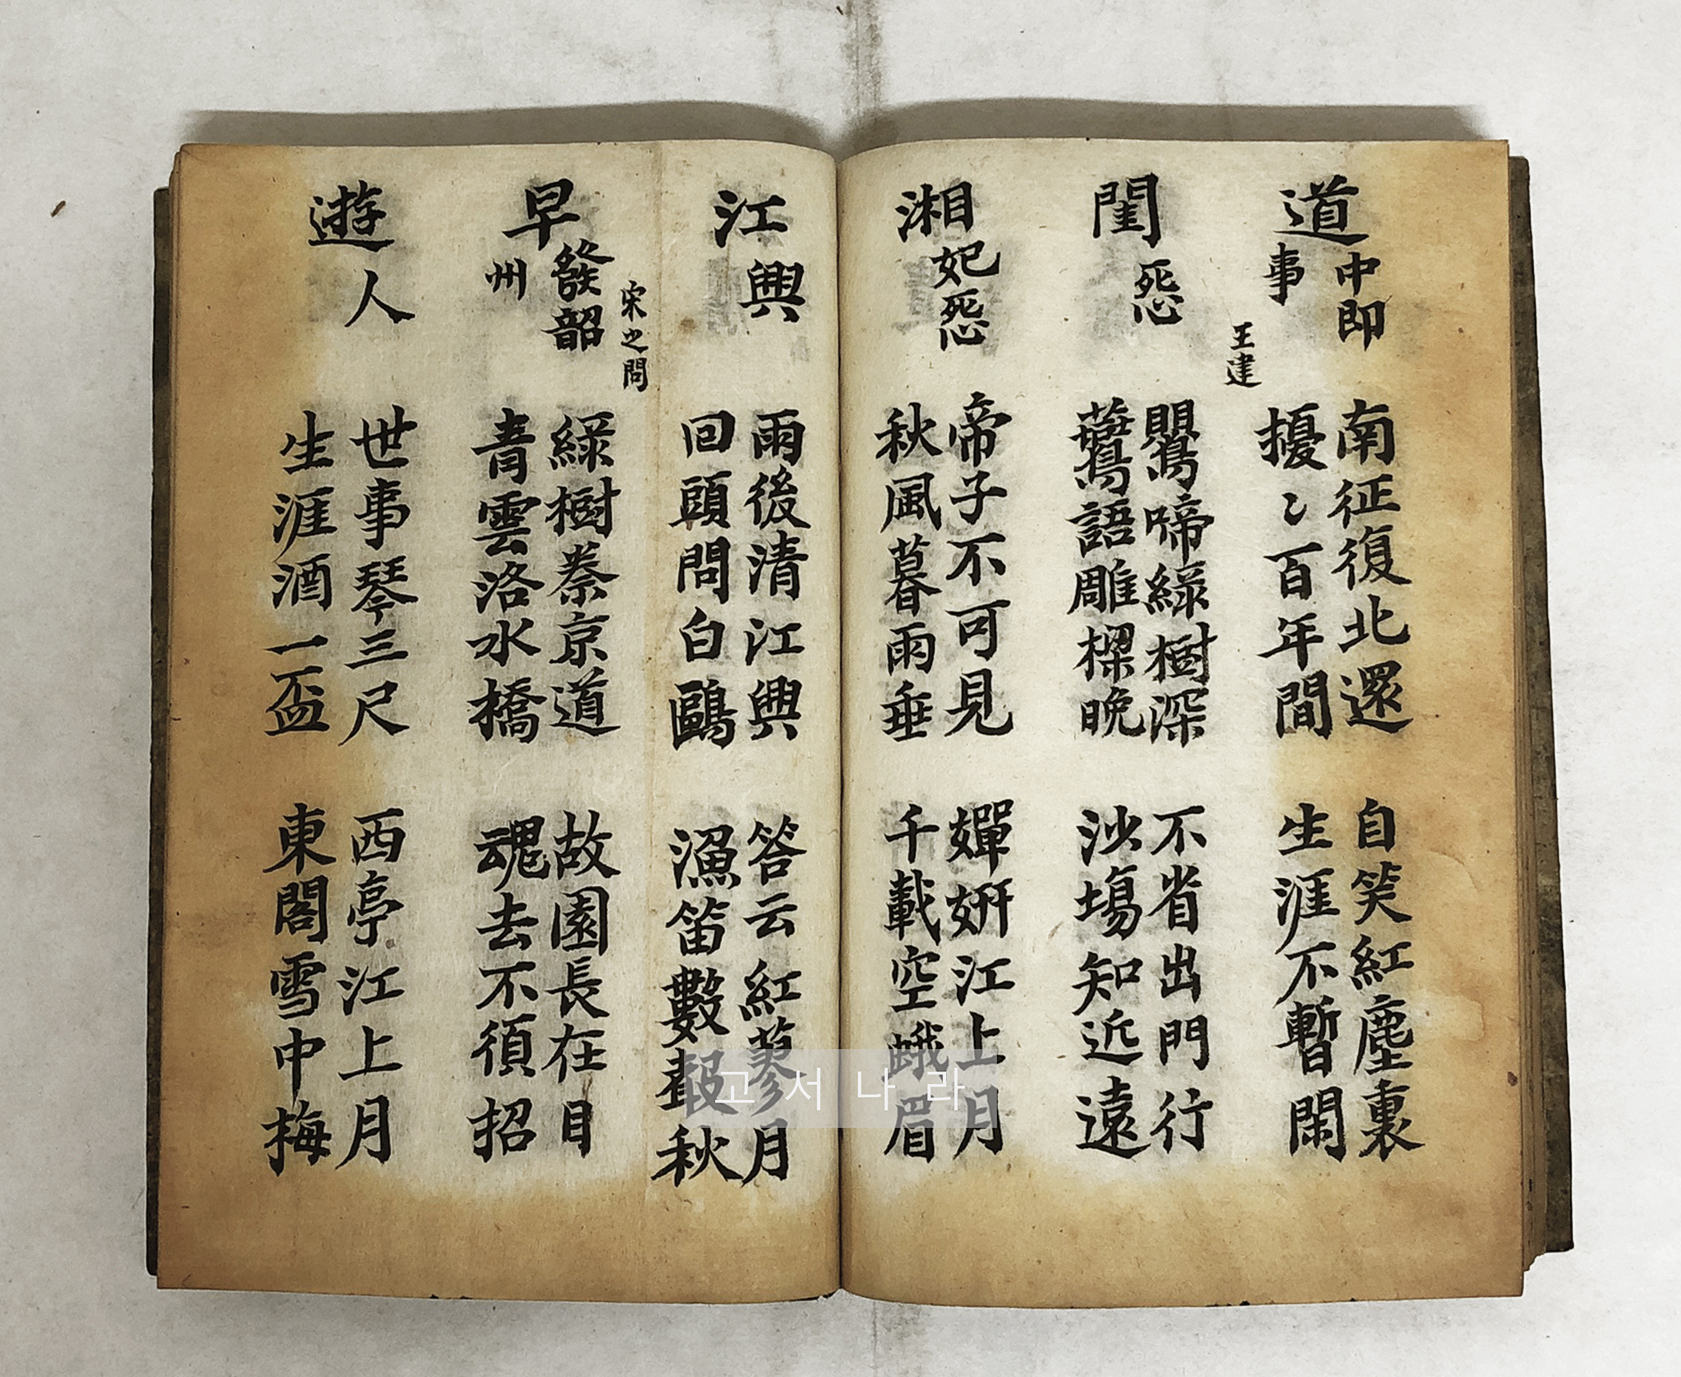 道中即事
南征復北還
擾〻百年間
自笑紅塵裏
生涯不暫閑
王建
閨怨
鸎啼綠樹深
鷰語雕樑晚
不省出門行
沙塲知近遠
湘妃怨
帝子不可見
秋風暮雨垂
嬋妍江上月
千載空蛾眉
江興
雨後清江興
回頭問白鷗
答云紅蓼月
漁笛數聲秋
宋之問
早發韶州
綠樹秦京道
青雲洛水橋
故園長在目
魂去不須招
遊人
世事琴三尺
生涯酒一盃
西亭江上月
東閣雪中梅
고서나라